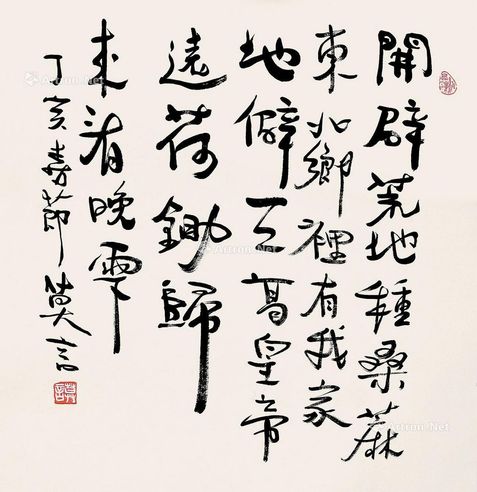 開辟荒地種桑麻
東北鄉裡有我家
地僻天高皇帝
遠荷鋤歸
来看晚霞
丁亥春節 莫言
Artron.Net